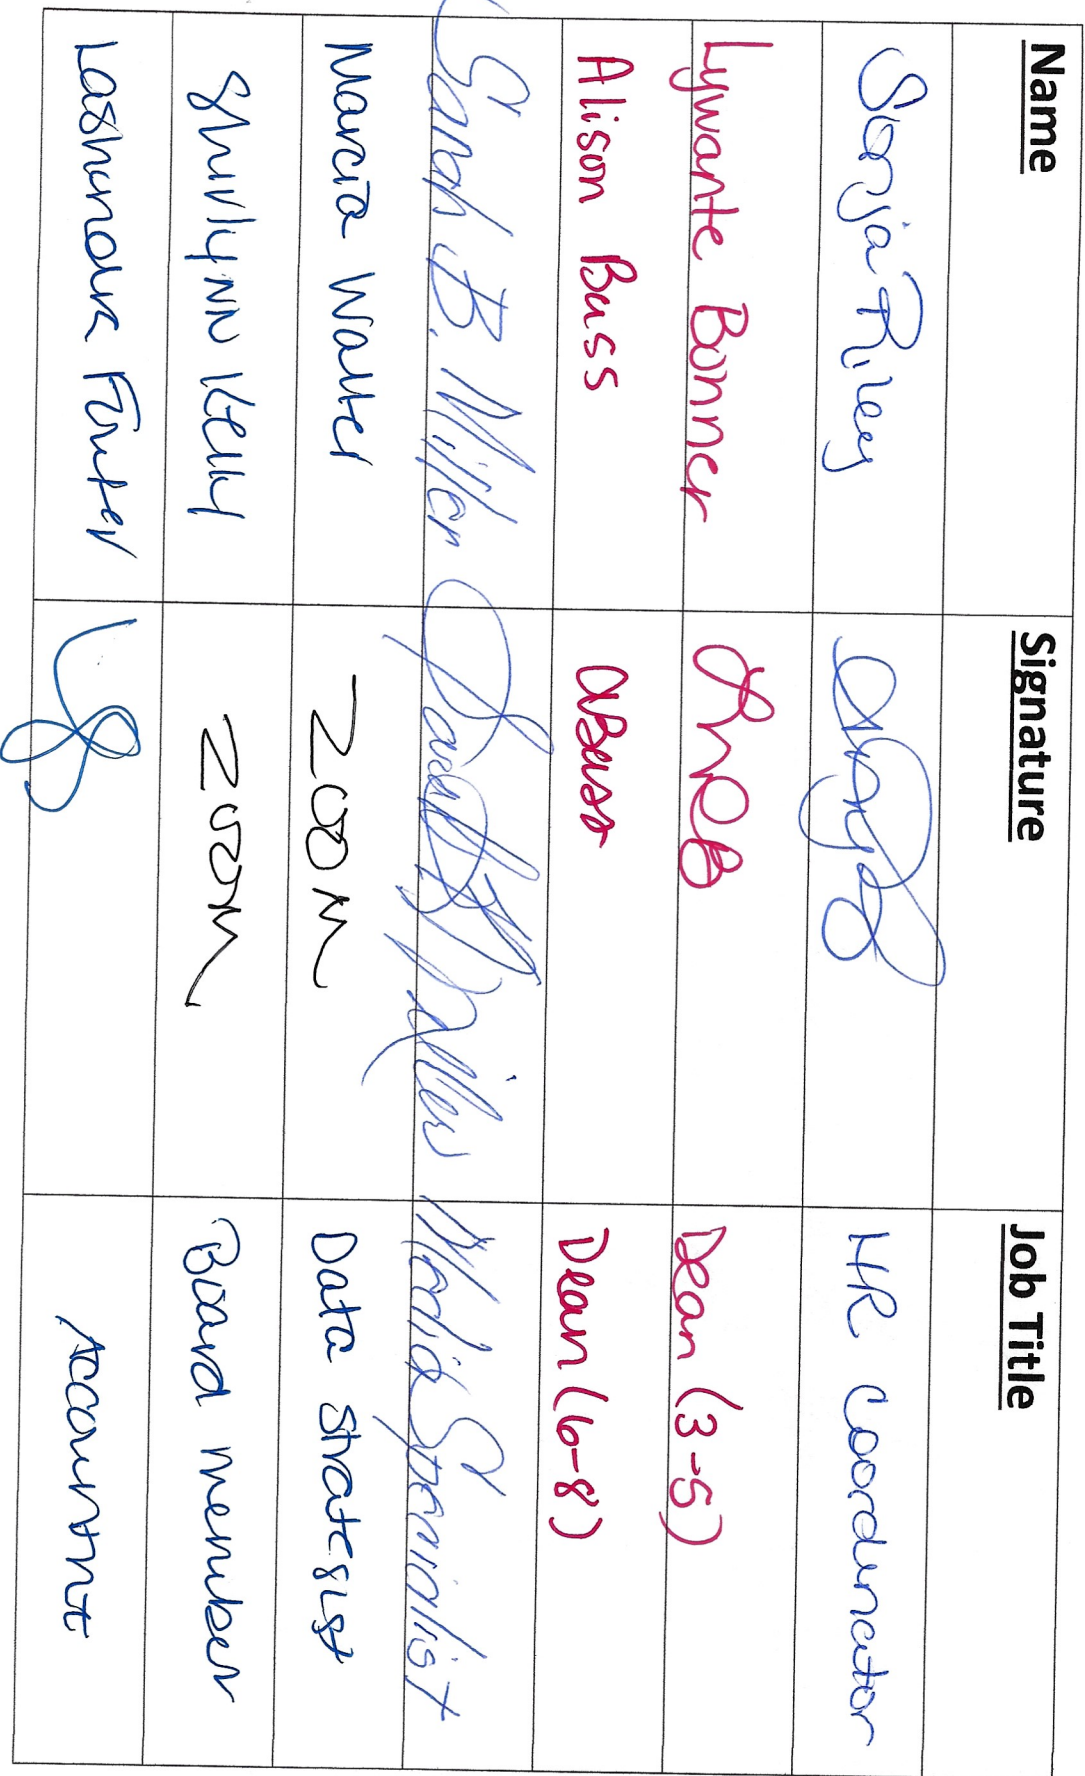 Name Signature Job Title
Sonja Riley HR Coordinator
Lywante Bonner LWB Dean (3-5)
Alison Buss ABuss Dean (6-8)
Sarah B. Miller Sarah B. Miller Media Specialist
Marcia Walter Zoom Data Strategist
Shirlynn Kelly Zoom Board member
Lashundra Accountant